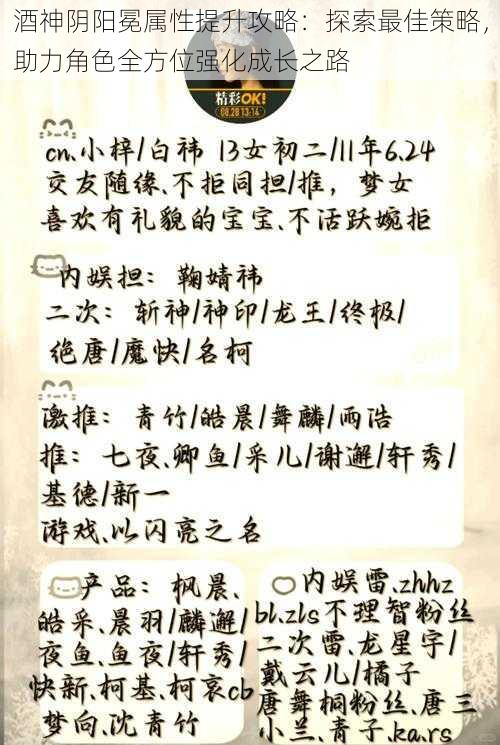 酒神阴阳冕属性提升攻略：探索最佳策略，
助力角色全方位强化成长之路
精彩OK!
08.28 13:14
cn.小梓/白祎 13女初二/11年6.24
交友随缘.不拒同担/推，梦女
喜欢有礼貌的宝宝.不活跃婉拒
内娱担：鞠婧祎
二次：斩神/神印/龙王/终极/
绝唐/魔快/名柯
激推：青竹/皓晨/舞麟/雨浩
推：七夜.卿鱼/采儿/谢邂/轩秀/
基德/新一
游戏.以闪亮之名
产品：枫晨.
皓采.晨羽/麟邂/
夜鱼.鱼夜/轩秀/
快新.柯基.柯哀cb
梦向.沈青竹
内娱雷.zhhz
bl.zls不理智粉丝
二次雷.龙星宇/
戴云儿/橘子
唐舞桐粉丝.唐三
小兰.青子.ka.rs